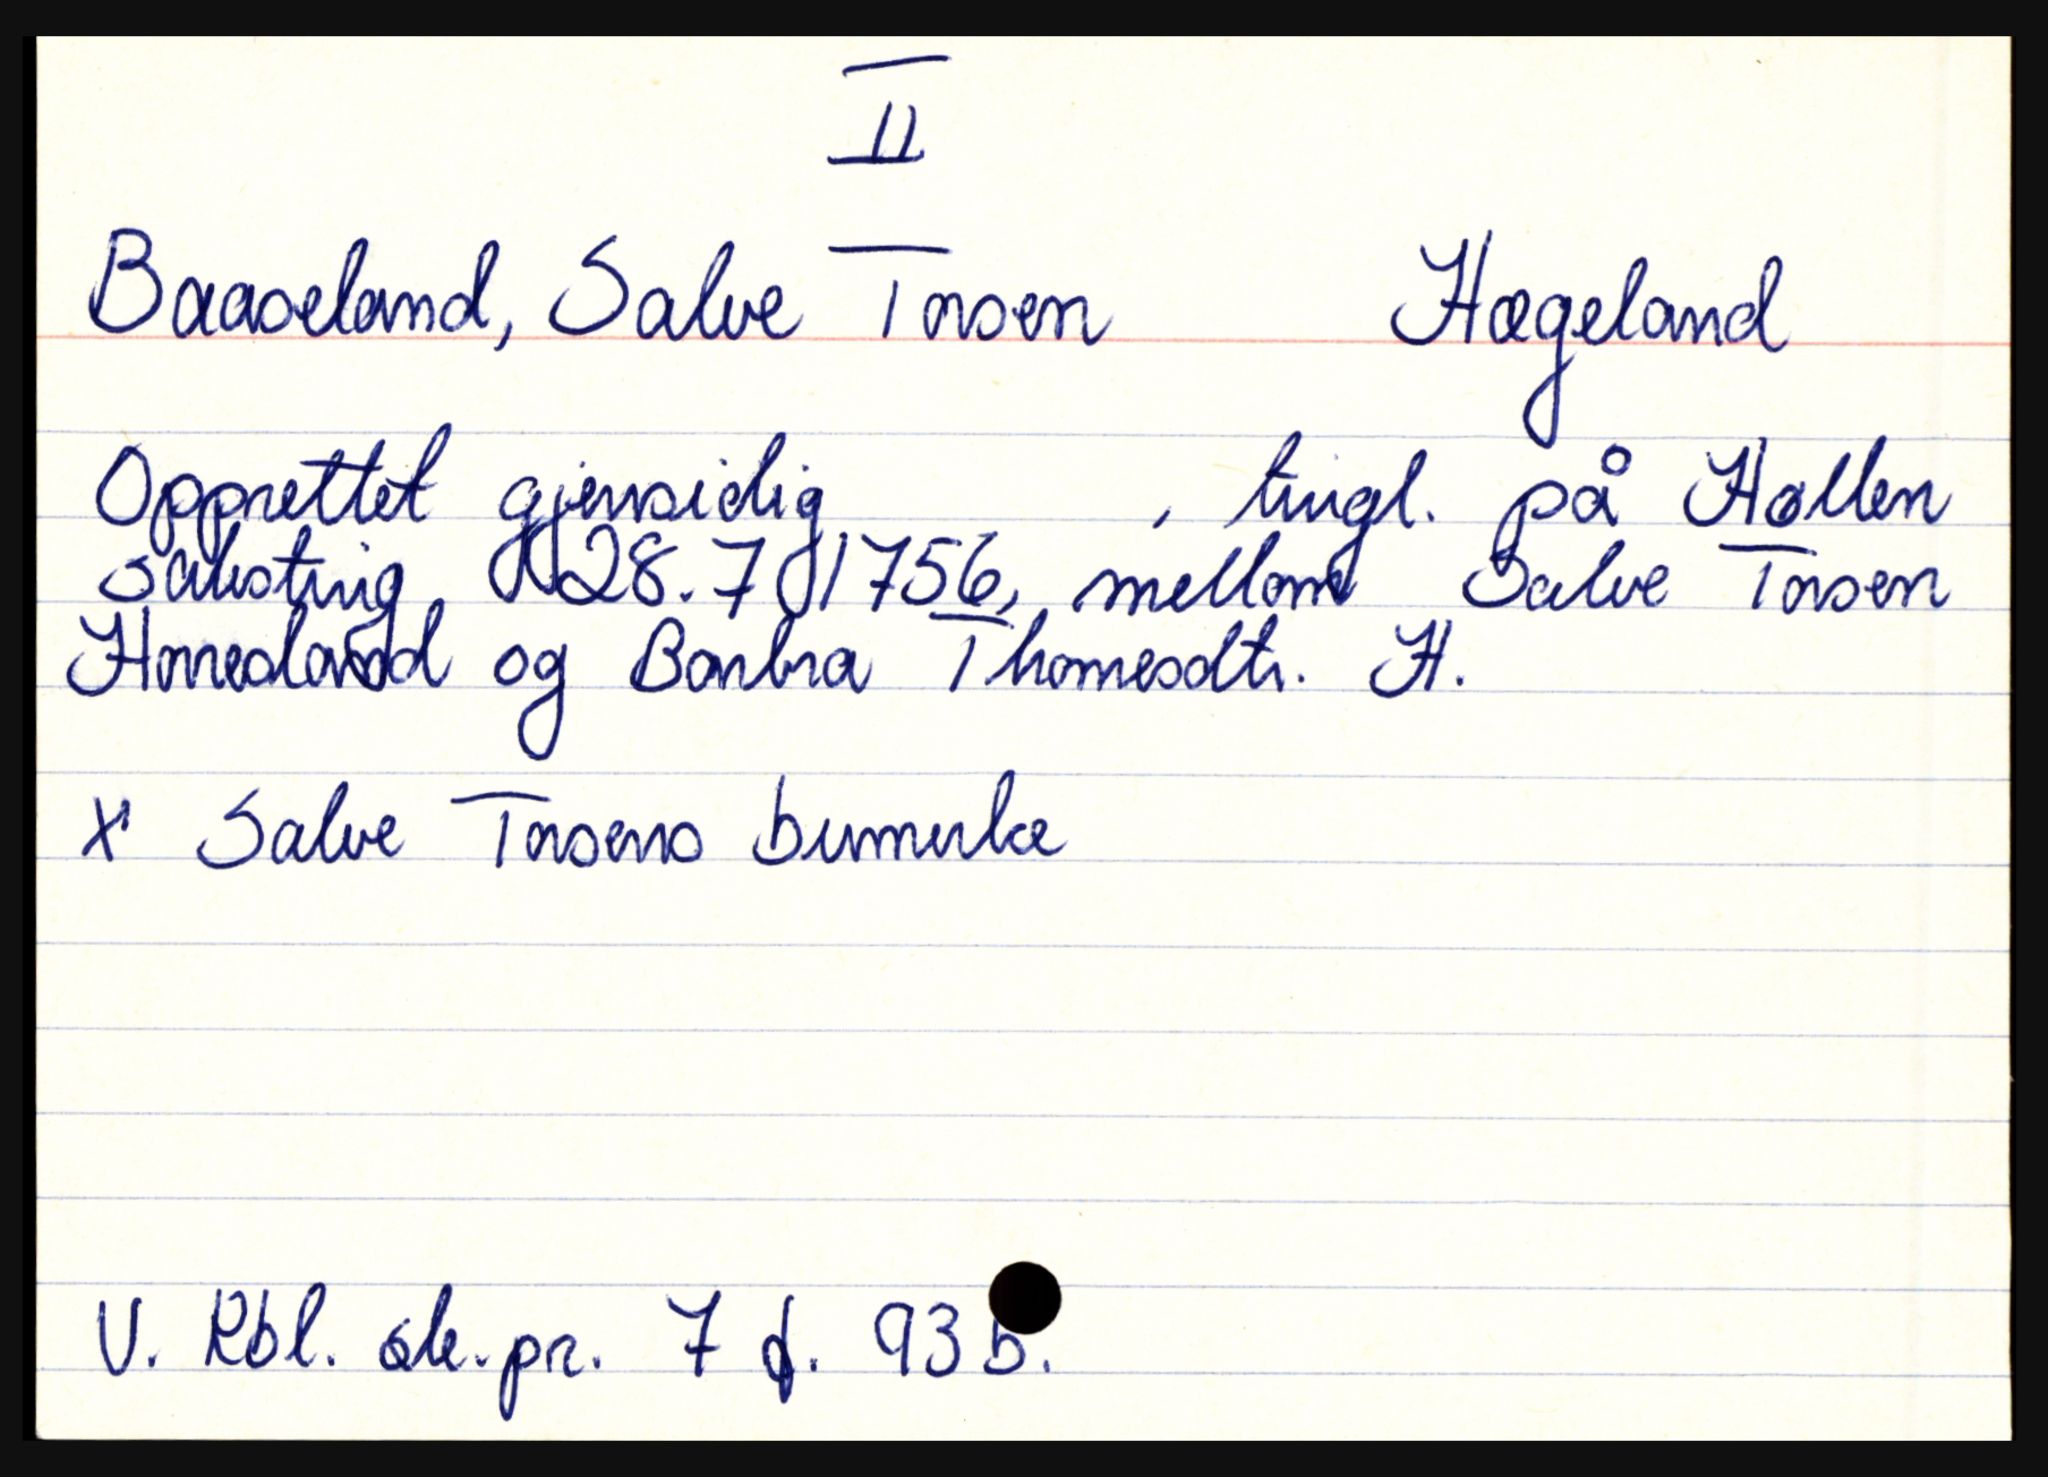 II
Baaseland, Salve Torsen Hægeland
Opprettet gjensidig , tingl. på Hollen
saksting 28.7 1756, mellom Salve Torsen
og Barbra Thomesdtr. H.
x Salve Torsens bumerke
V. Rbl. sk. pr. 7 f. 93 b.